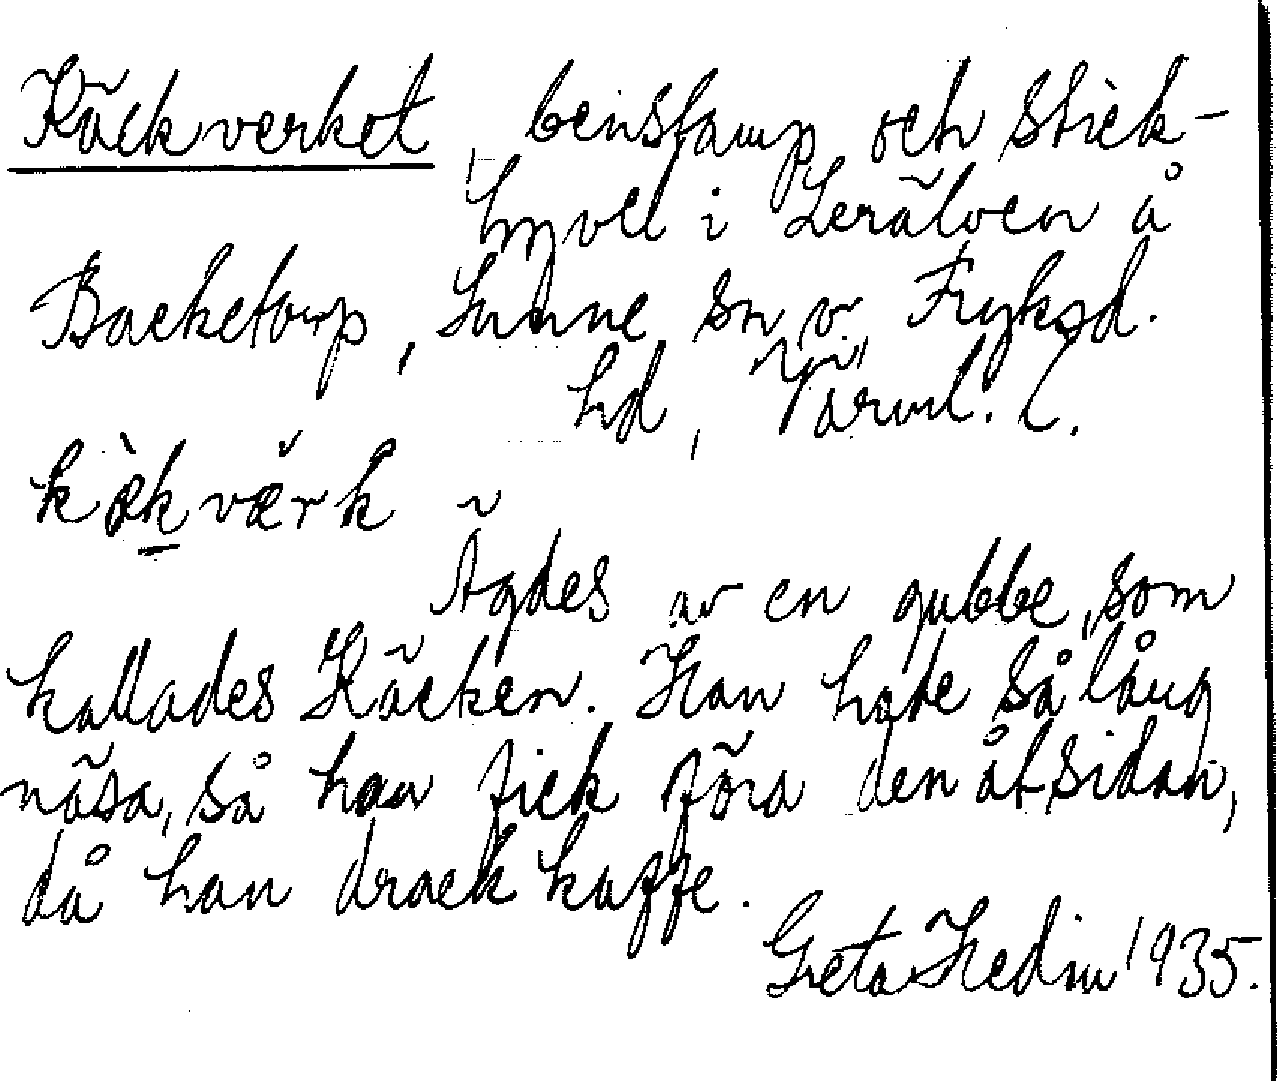 Käckverket, benstamp och stick-
hyvel i Lerälven å
Backetorp, Sunne sn o. Fryksd.
hd, Värml. l.
kæ̀kværk
Ägdes av en gubbe, som
kallades Käcken. Han hade så lång
näsa, så han fick föra den åt sidan,
då han drack kaffe.
Greta Hedin 1935.